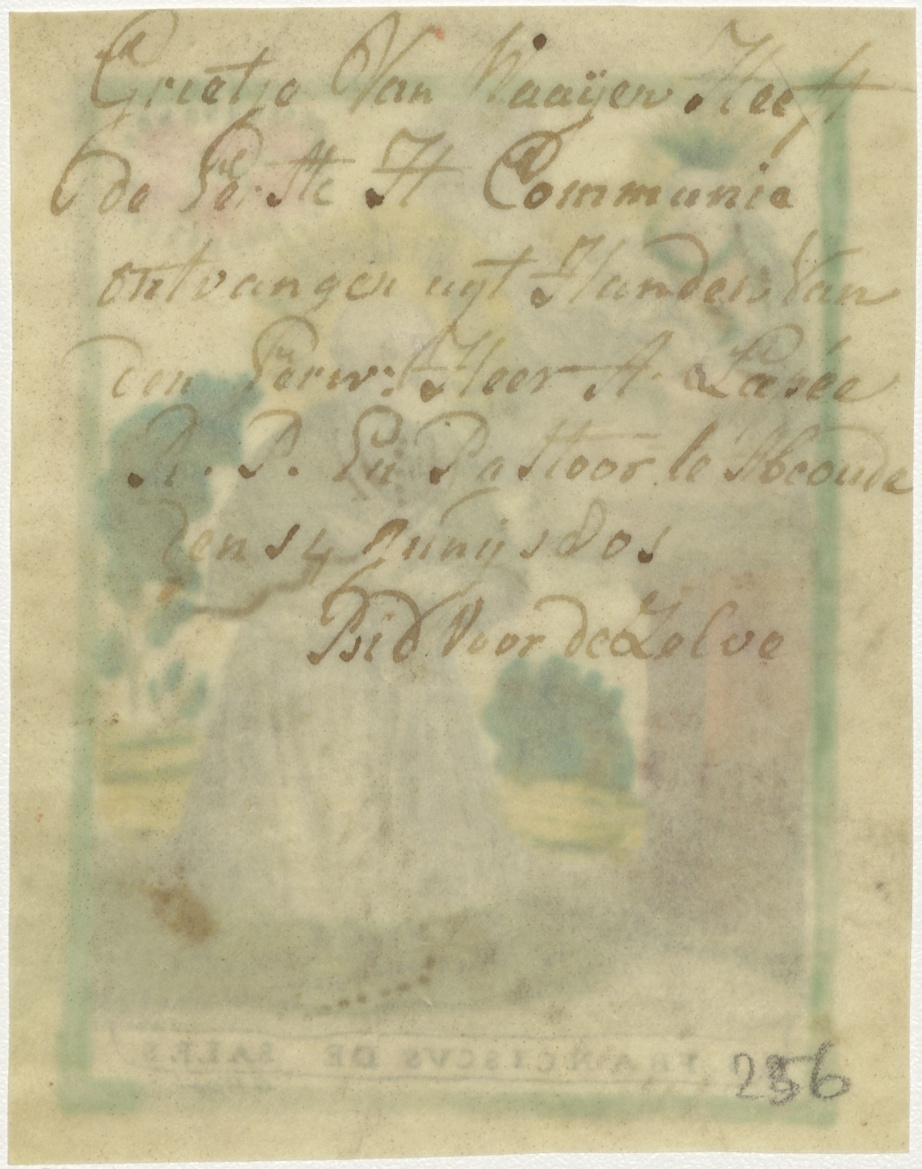 Grietje Van Waaijen Heeft
de Eerste H Communie
ontvangen uyt Handen Van
den Eerw: Heer A. Lasée
R. P. En Pastoor te Abcoude
Den 14 Junij 1801
Bid Voor de Zelve
FRANCISCVS DE SALES
256